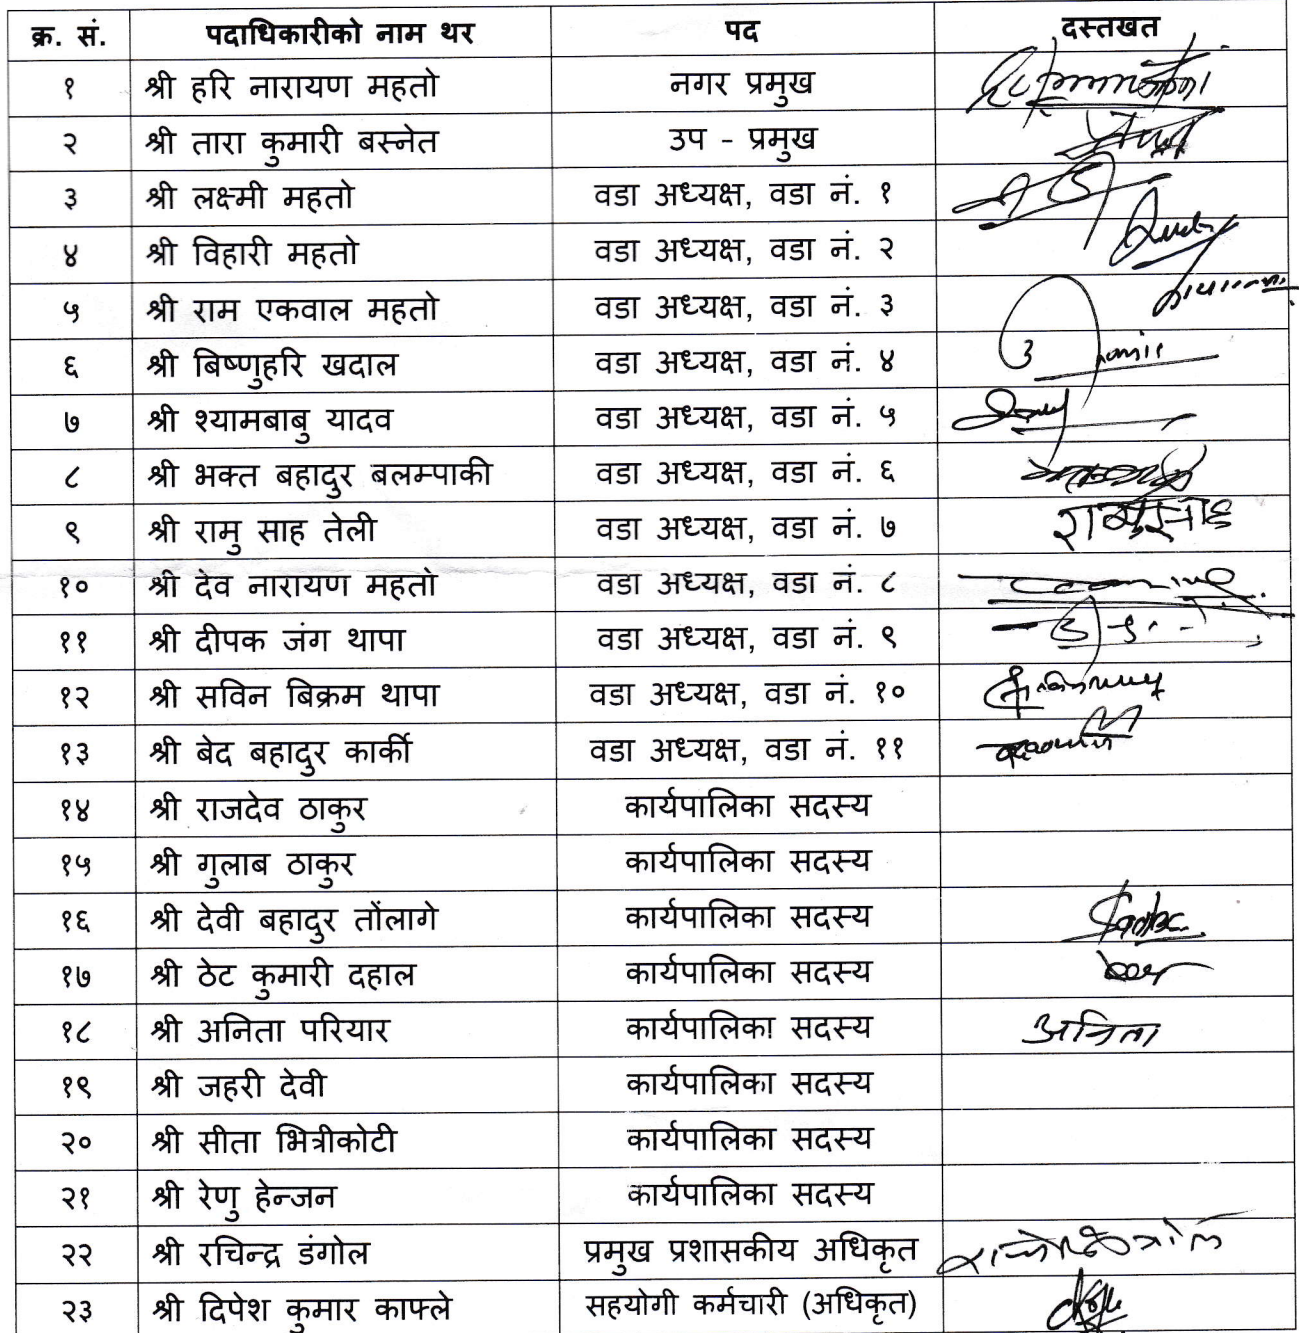 क्र. सं. पदाधिकारीको नाम थर पद दस्तखत
१ श्री हरि नारायण महतो नगर प्रमुख
२ श्री तारा कुमारी बस्नेत उप - प्रमुख
३ श्री लक्ष्मी महतो वडा अध्यक्ष, वडा नं. १
४ श्री विहारी महतो वडा अध्यक्ष, वडा नं. २
५ श्री राम एकवाल महतो वडा अध्यक्ष, वडा नं. ३
६ श्री बिष्णुहरि खदाल वडा अध्यक्ष, वडा नं. ४
७ श्री श्यामबाबु यादव वडा अध्यक्ष, वडा नं. ५
८ श्री भक्त बहादुर बलम्पाकी वडा अध्यक्ष, वडा नं. ६
९ श्री रामु साह तेली वडा अध्यक्ष, वडा नं. ७
१० श्री देव नारायण महतो वडा अध्यक्ष, वडा नं. ८
११ श्री दीपक जंग थापा वडा अध्यक्ष, वडा नं. ९
१२ श्री सविन बिक्रम थापा वडा अध्यक्ष, वडा नं. १०
१३ श्री बेद बहादुर कार्की वडा अध्यक्ष, वडा नं. ११
१४ श्री राजदेव ठाकुर कार्यपालिका सदस्य
१५ श्री गुलाब ठाकुर कार्यपालिका सदस्य
१६ श्री देवी बहादुर तोंलागे कार्यपालिका सदस्य
१७ श्री ठेट कुमारी दहाल कार्यपालिका सदस्य
१८ श्री अनिता परियार कार्यपालिका सदस्य अनिता
१९ श्री जहरी देवी कार्यपालिका सदस्य
२० श्री सीता भित्रीकोटी कार्यपालिका सदस्य
२१ श्री रेणु हेन्जन कार्यपालिका सदस्य
२२ श्री रचिन्द्र डंगोल प्रमुख प्रशासकीय अधिकृत
२३ श्री दिपेश कुमार काफ्ले सहयोगी कर्मचारी (अधिकृत)